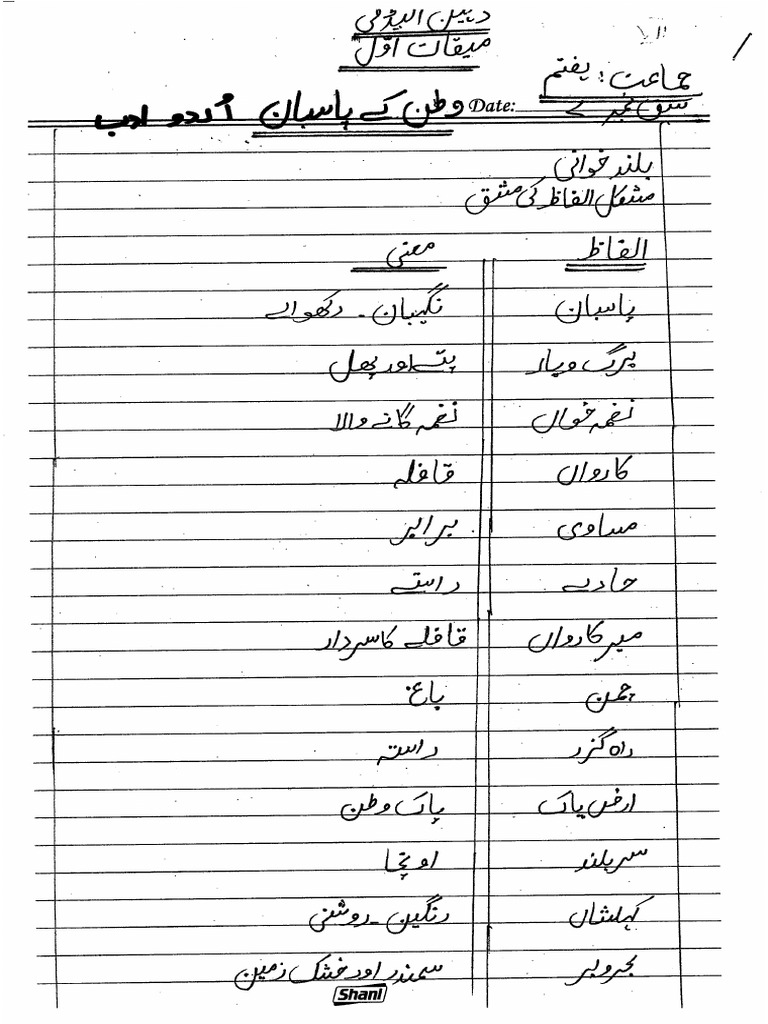 دبین اکیڈمی
میقات اوّل
جماعت: ہفتم
سبق نمبر ۷ Date: وطن کے پاسبان اُردو ادب
بلند خوانی
مشکل الفاظ کی مشق
الفاظ معنی
پاسبان نگہبان - رکھوالے
برگ و بار پتے اور پھل
نغمہ خواں نغمہ گانے والا
کارواں قافلہ
مساوی برابر
جادے راستے
میر کارواں قافلے کا سردار
چمن باغ
راہ گزر راستہ
ارض پاک پاک وطن
سربلند اونچا
کہکشاں رنگین - روشنی
بحروبر سمندر اور خشک زمین
Shani